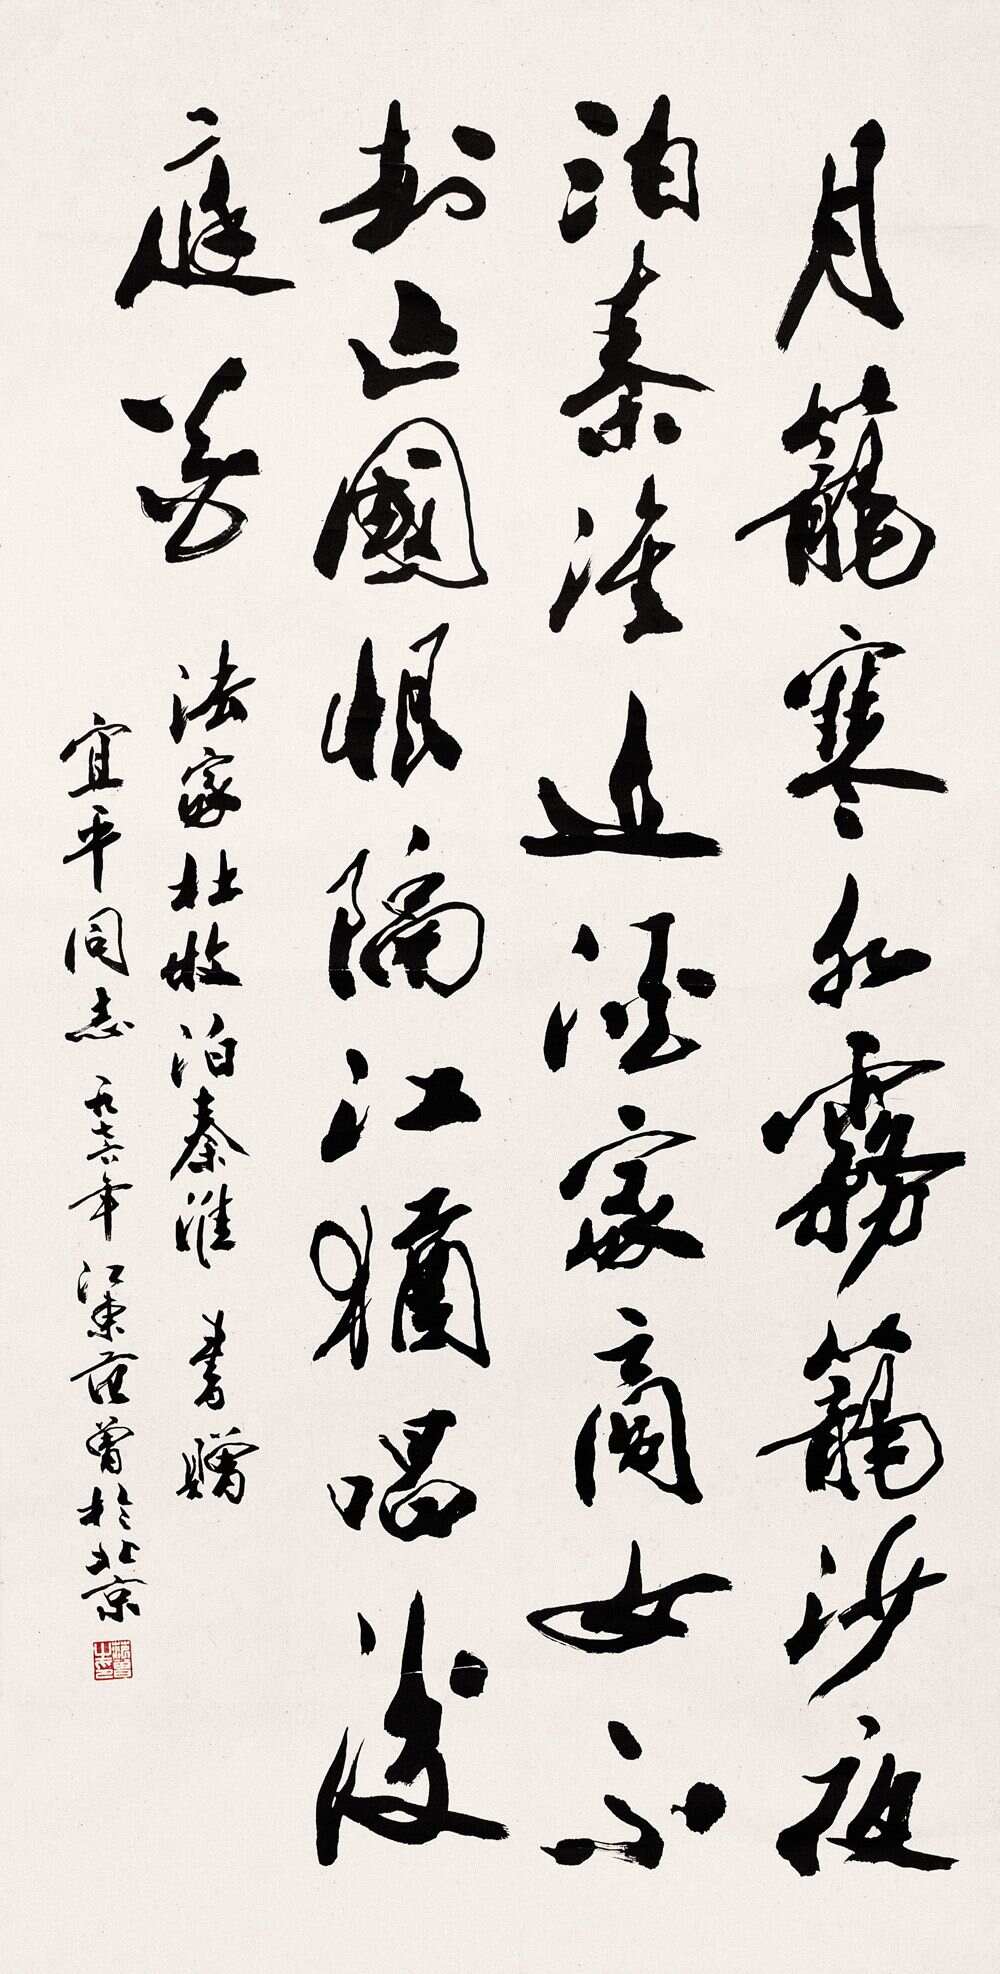 月籠寒水霧籠沙夜
泊秦淮近酒家商女不
知亡國恨隔江猶唱後
庭花
法家杜牧泊秦淮 書贈
宜平同志 一九七六年 江東范曾於北京